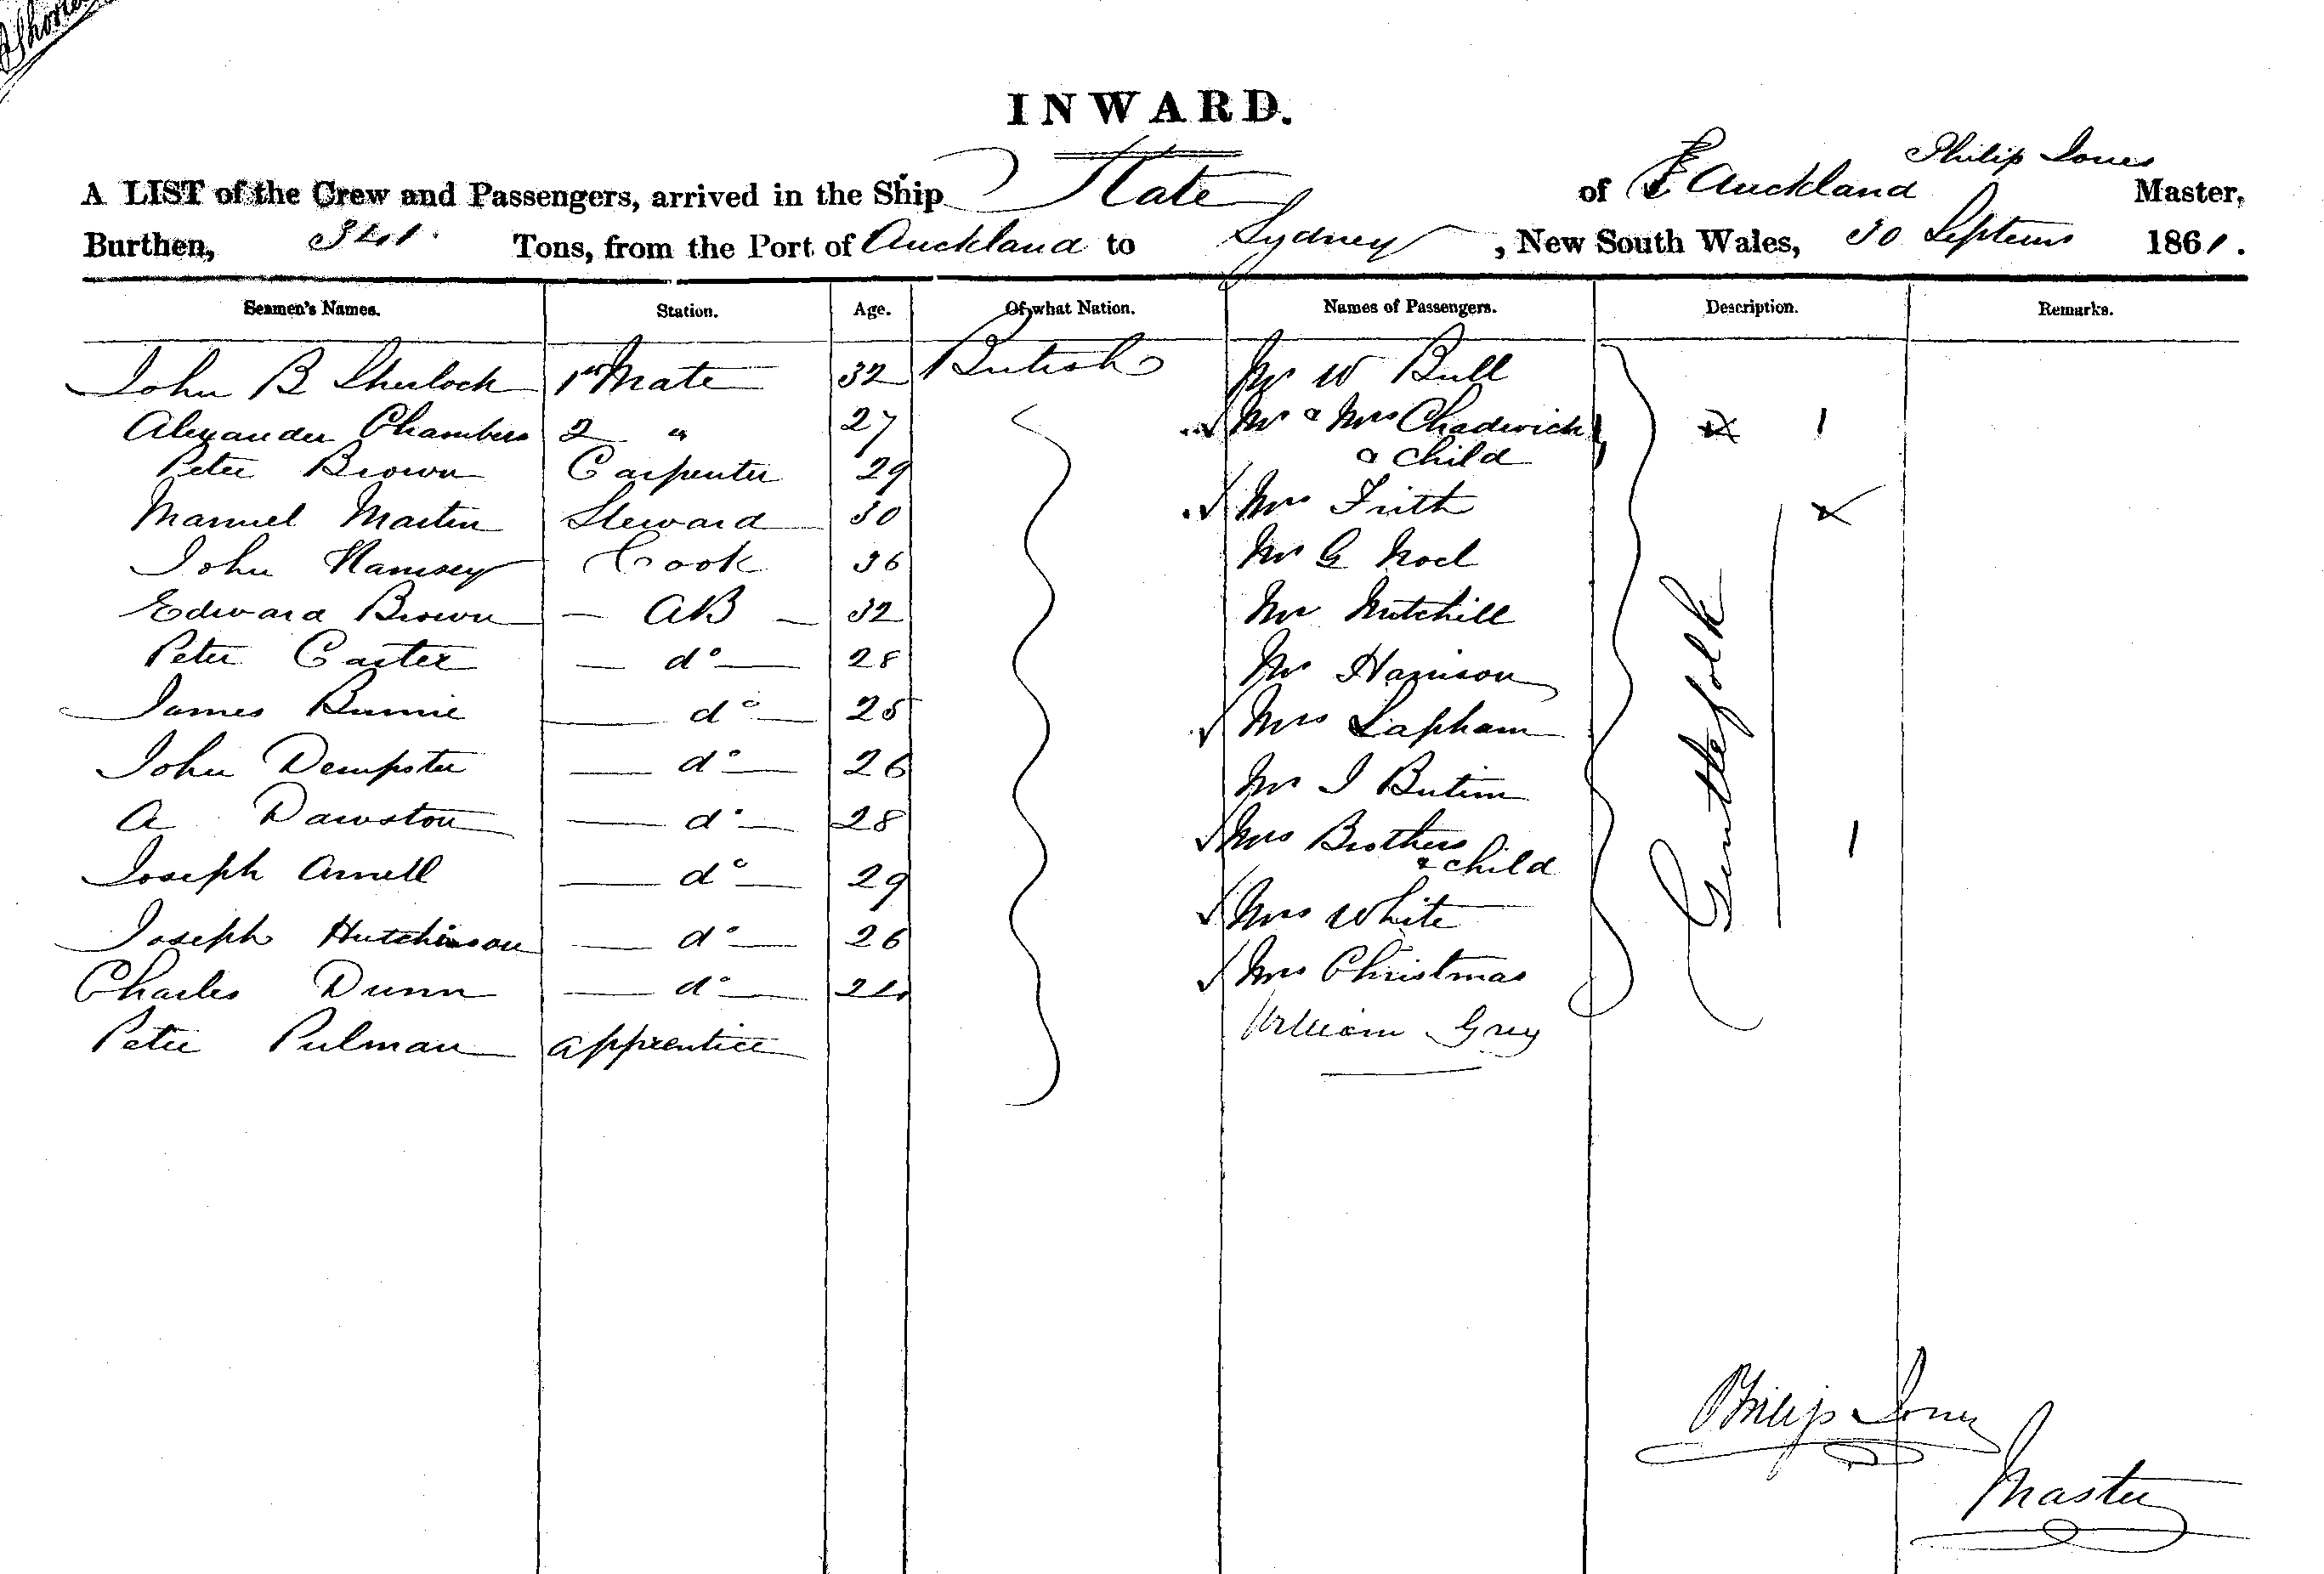 INWARD.
A LIST of the Crew and Passengers, arrived in the Ship Kate of Auckland Philip Jones Master,
Burthen, 341 Tons, from the Port of Auckland to Sydney, New South Wales, 30 1861.
Seamen's Names. Station. Age. Of what Nation. Names of Passengers. Description. Remarks.
John B Sherlock 1st Mate 32 British Mr W Bull
Alexander Chambers 2 " 27 Mr & Mrs Chadwick 1
Peter Brown Carpenter 29 & Child
Manuel Martin Steward 30 Mrs Frith
John Ramsey Cook 36 Mr G Noel
Edward Brown AB 32 Mr
Peter Carter do 28 Mr Harrison
James do 25 Mrs Lapham
John Dempster do 26 Mr J
A Dawston do 28 Mrs Brothers 1
& child
Joseph Arnell do 29 Mrs White
Joseph Hutchinson do 26 Mrs Christmas
Charles Dunn do 24 William Grey
Peter Pulman apprentice
Gentlefolk
Philip Jones
Master